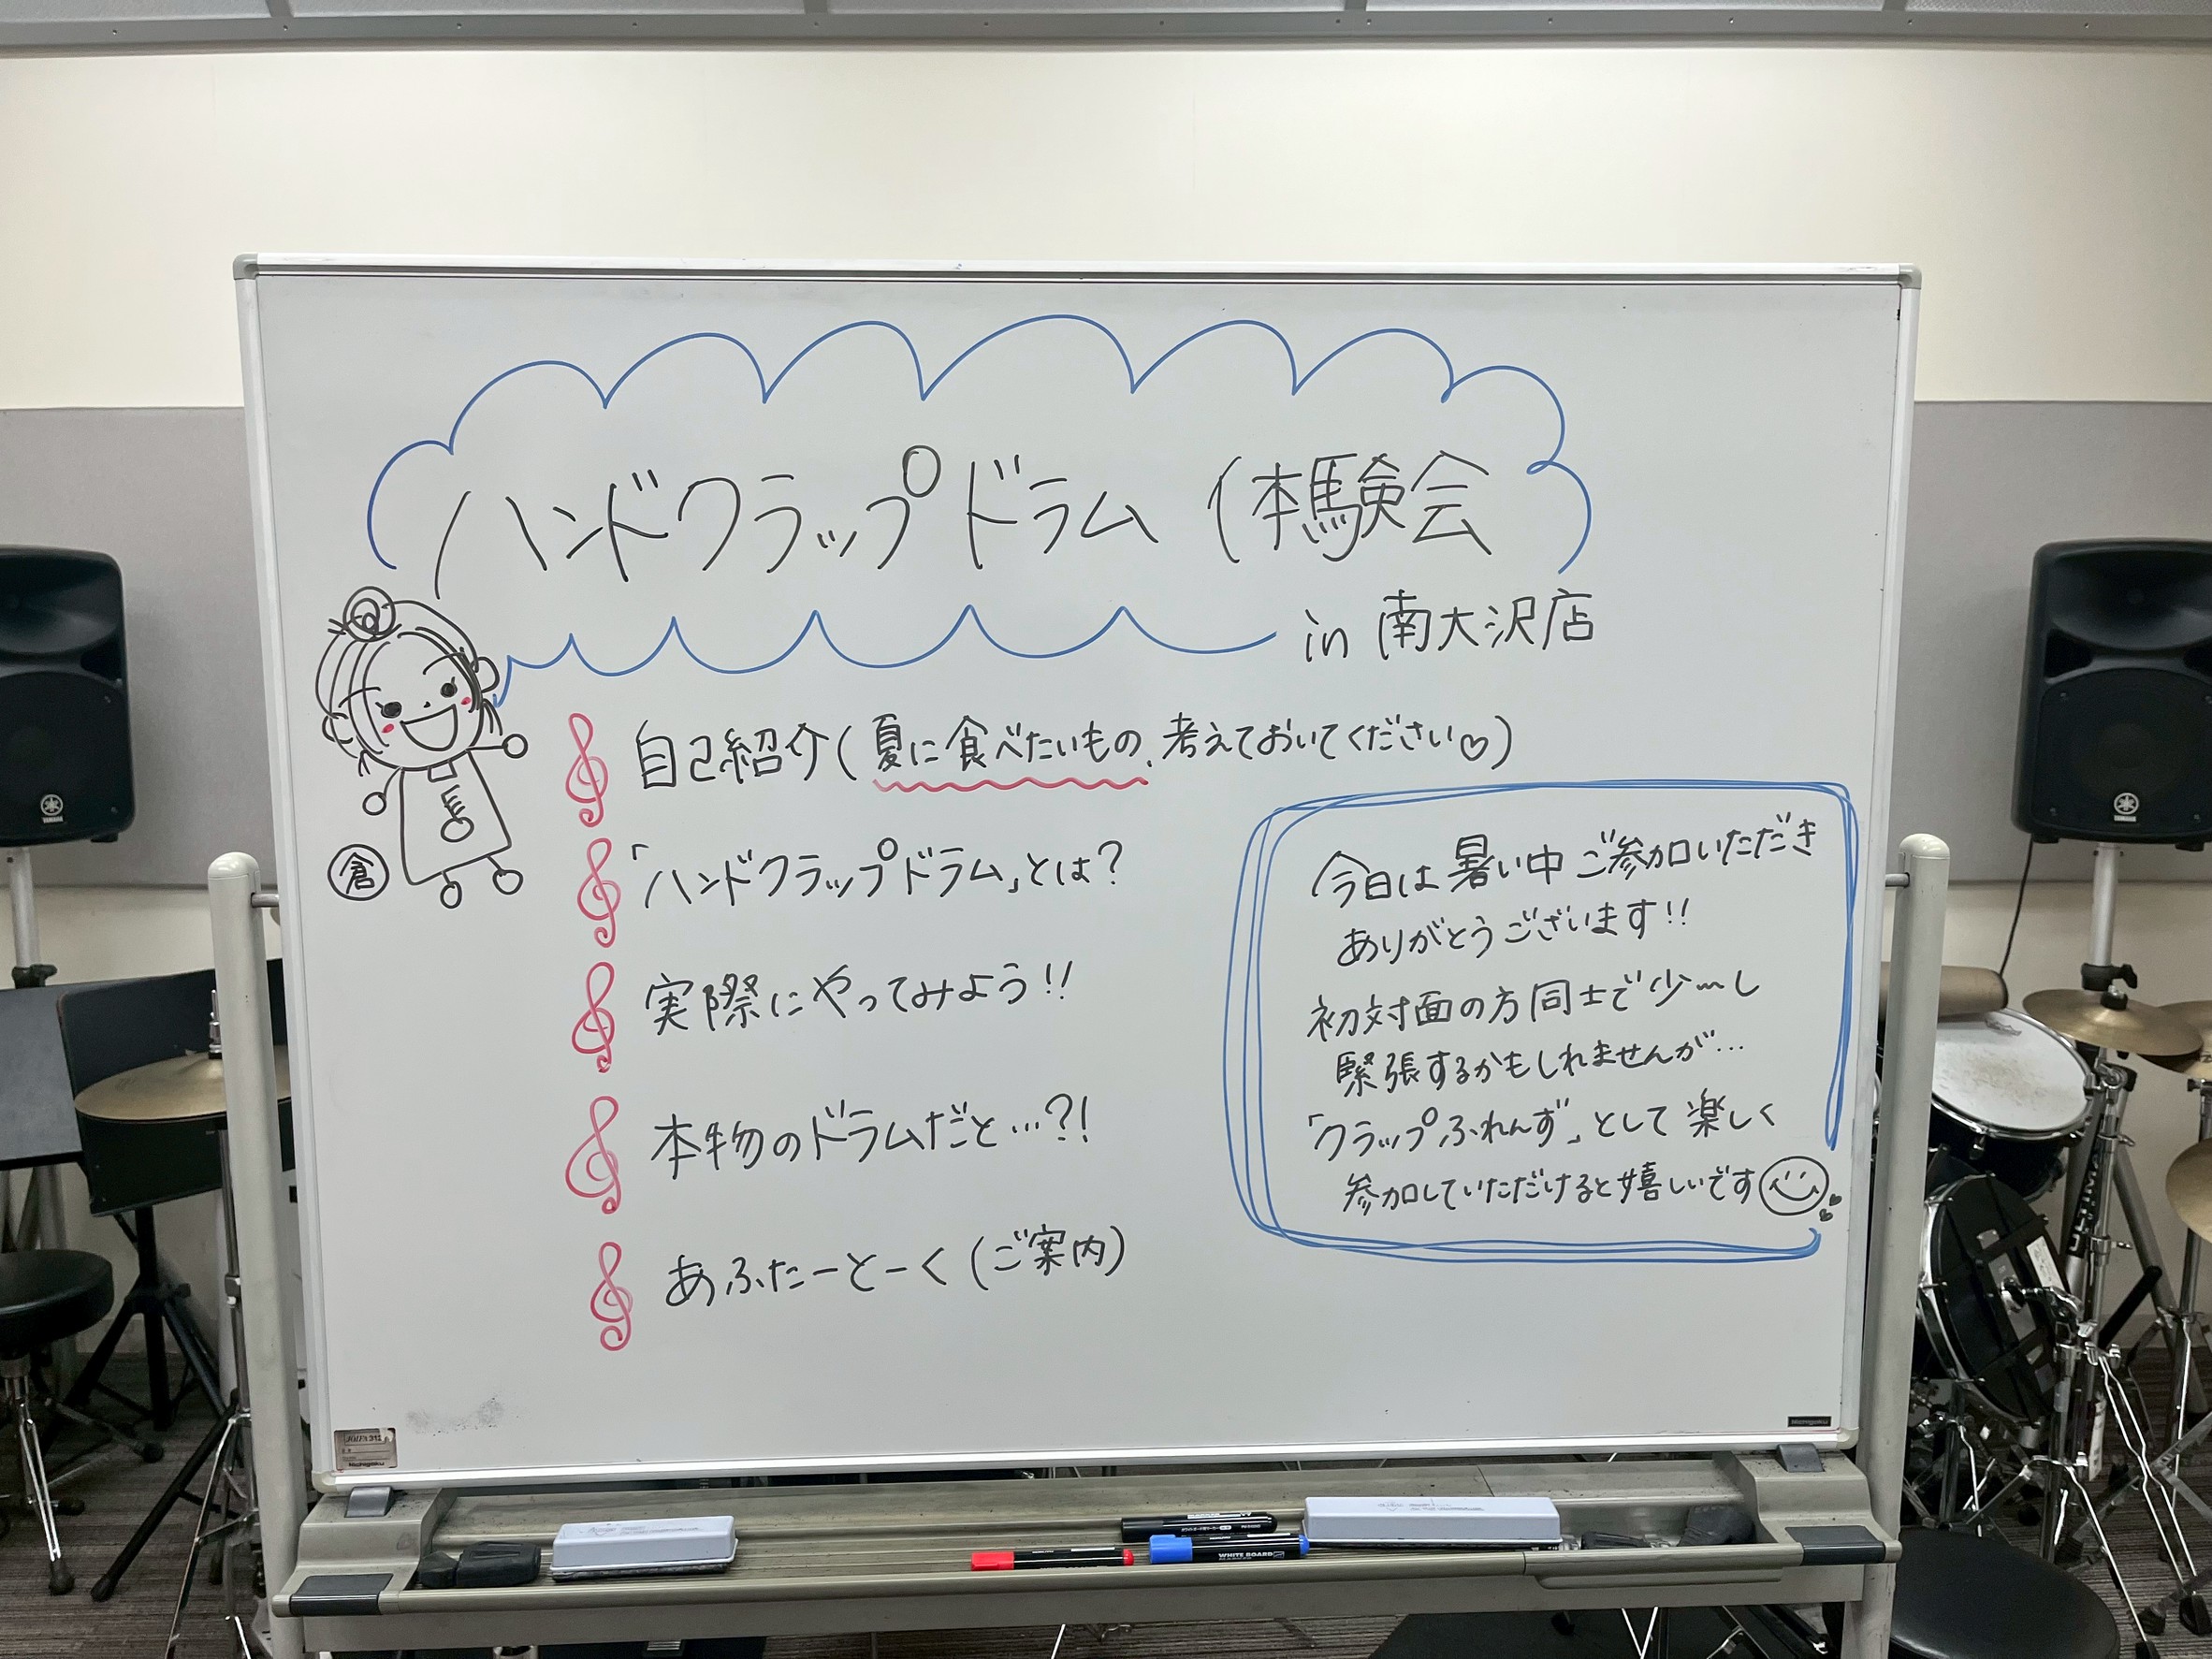 ハンドクラップドラム体験会
in 南大沢店
自己紹介(夏に食べたいもの、考えておいてください♡)
「ハンドクラップドラム」とは?
実際にやってみよう!!
本物のドラムだと…?!
あふたーとーく(ご案内)
倉
今日は暑い中ご参加いただき
ありがとうございます!!
初対面の方同士で少〜し
緊張するかもしれませんが…
「クラップふれんず」として楽しく
参加していただけると嬉しいです
YAMAHA
YAMAHA
Nichigaku
Nichigaku
WHITE BOARD